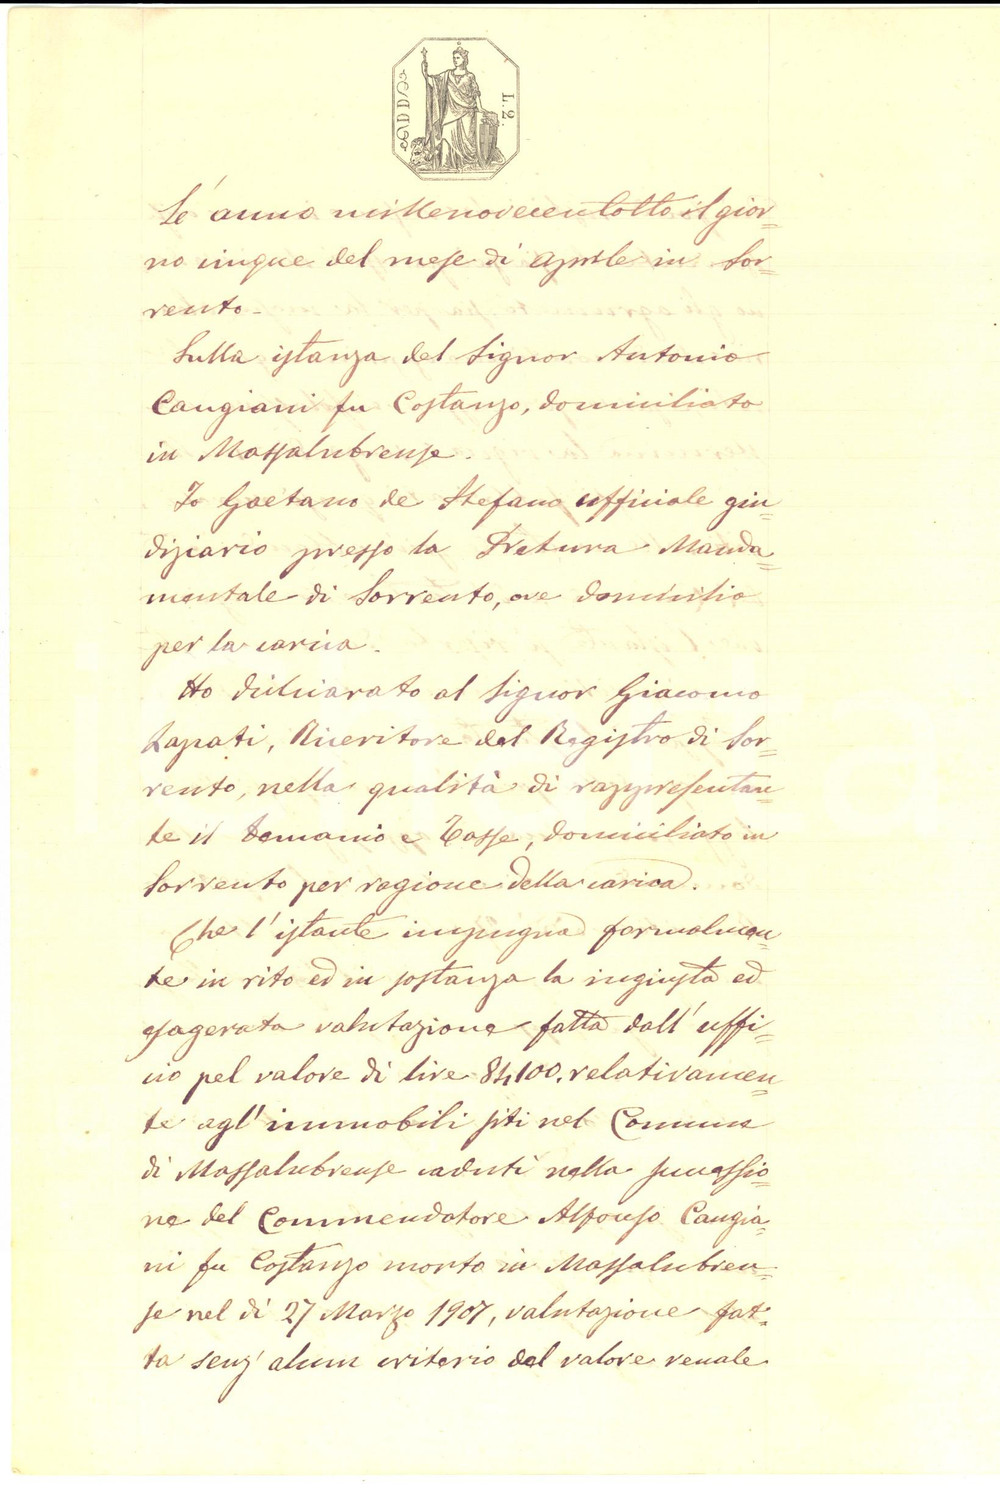 L. 2.
L' anno millenovecentotto il gior=
no cinque del mese di Aprile in Sor=
rento.
Sulla istanza del Signor Antonio
Cangiani fu Costanzo, domiciliato
in Massalubrense.
Io Gaetano de Stefano ufficiale giu=
diziario presso la Pretura Manda=
mentale di Sorrento, ove domicilio
per la carica.
Ho dichiarato al Signor Giacomo
Ricevitore del Registro di Sor=
rento, nella qualità di rappresentan=
te il Demanio e Tasse, domiciliato in
Sorrento per ragione della carica.
Che l' istante impugna formalmen=
te in rito ed in sostanza la ingiusta ed
esagerata valutazione fatta dall' uffi=
cio pel valore di lire 84100. relativamen=
te agl' immobili siti nel Comune
di Massalubrense caduti nella successio=
ne del Commendatore Alfonso Cangia=
ni fu Costanzo morto in Massalubren=
se nel dì 27 Marzo 1907, valutazione fat=
ta senz' alcun criterio del valore venale